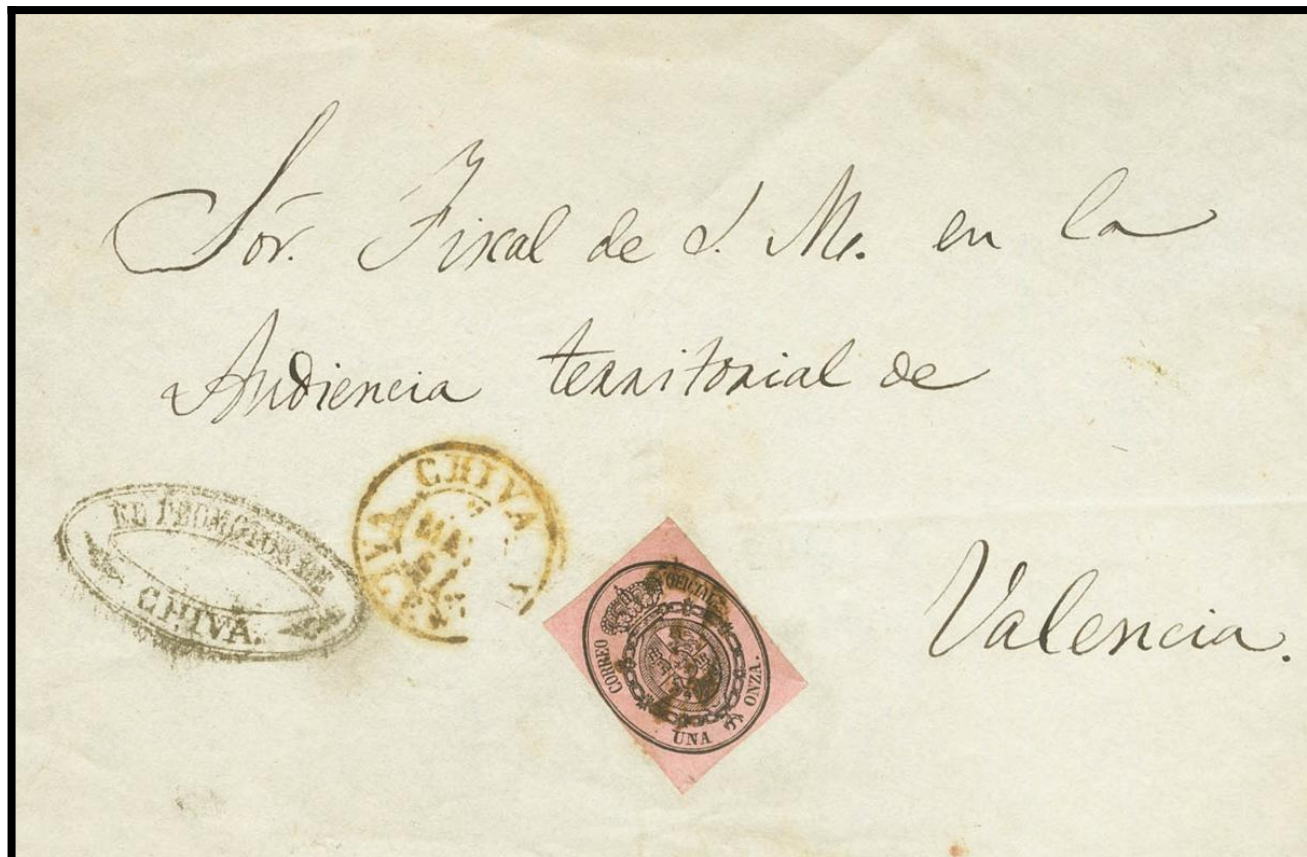 Sor. Fiscal de S. M. en la
Audiencia territorial de
Valencia.
CHIVA
CHIVA.
CORREO OFICIAL
UNA ONZA.